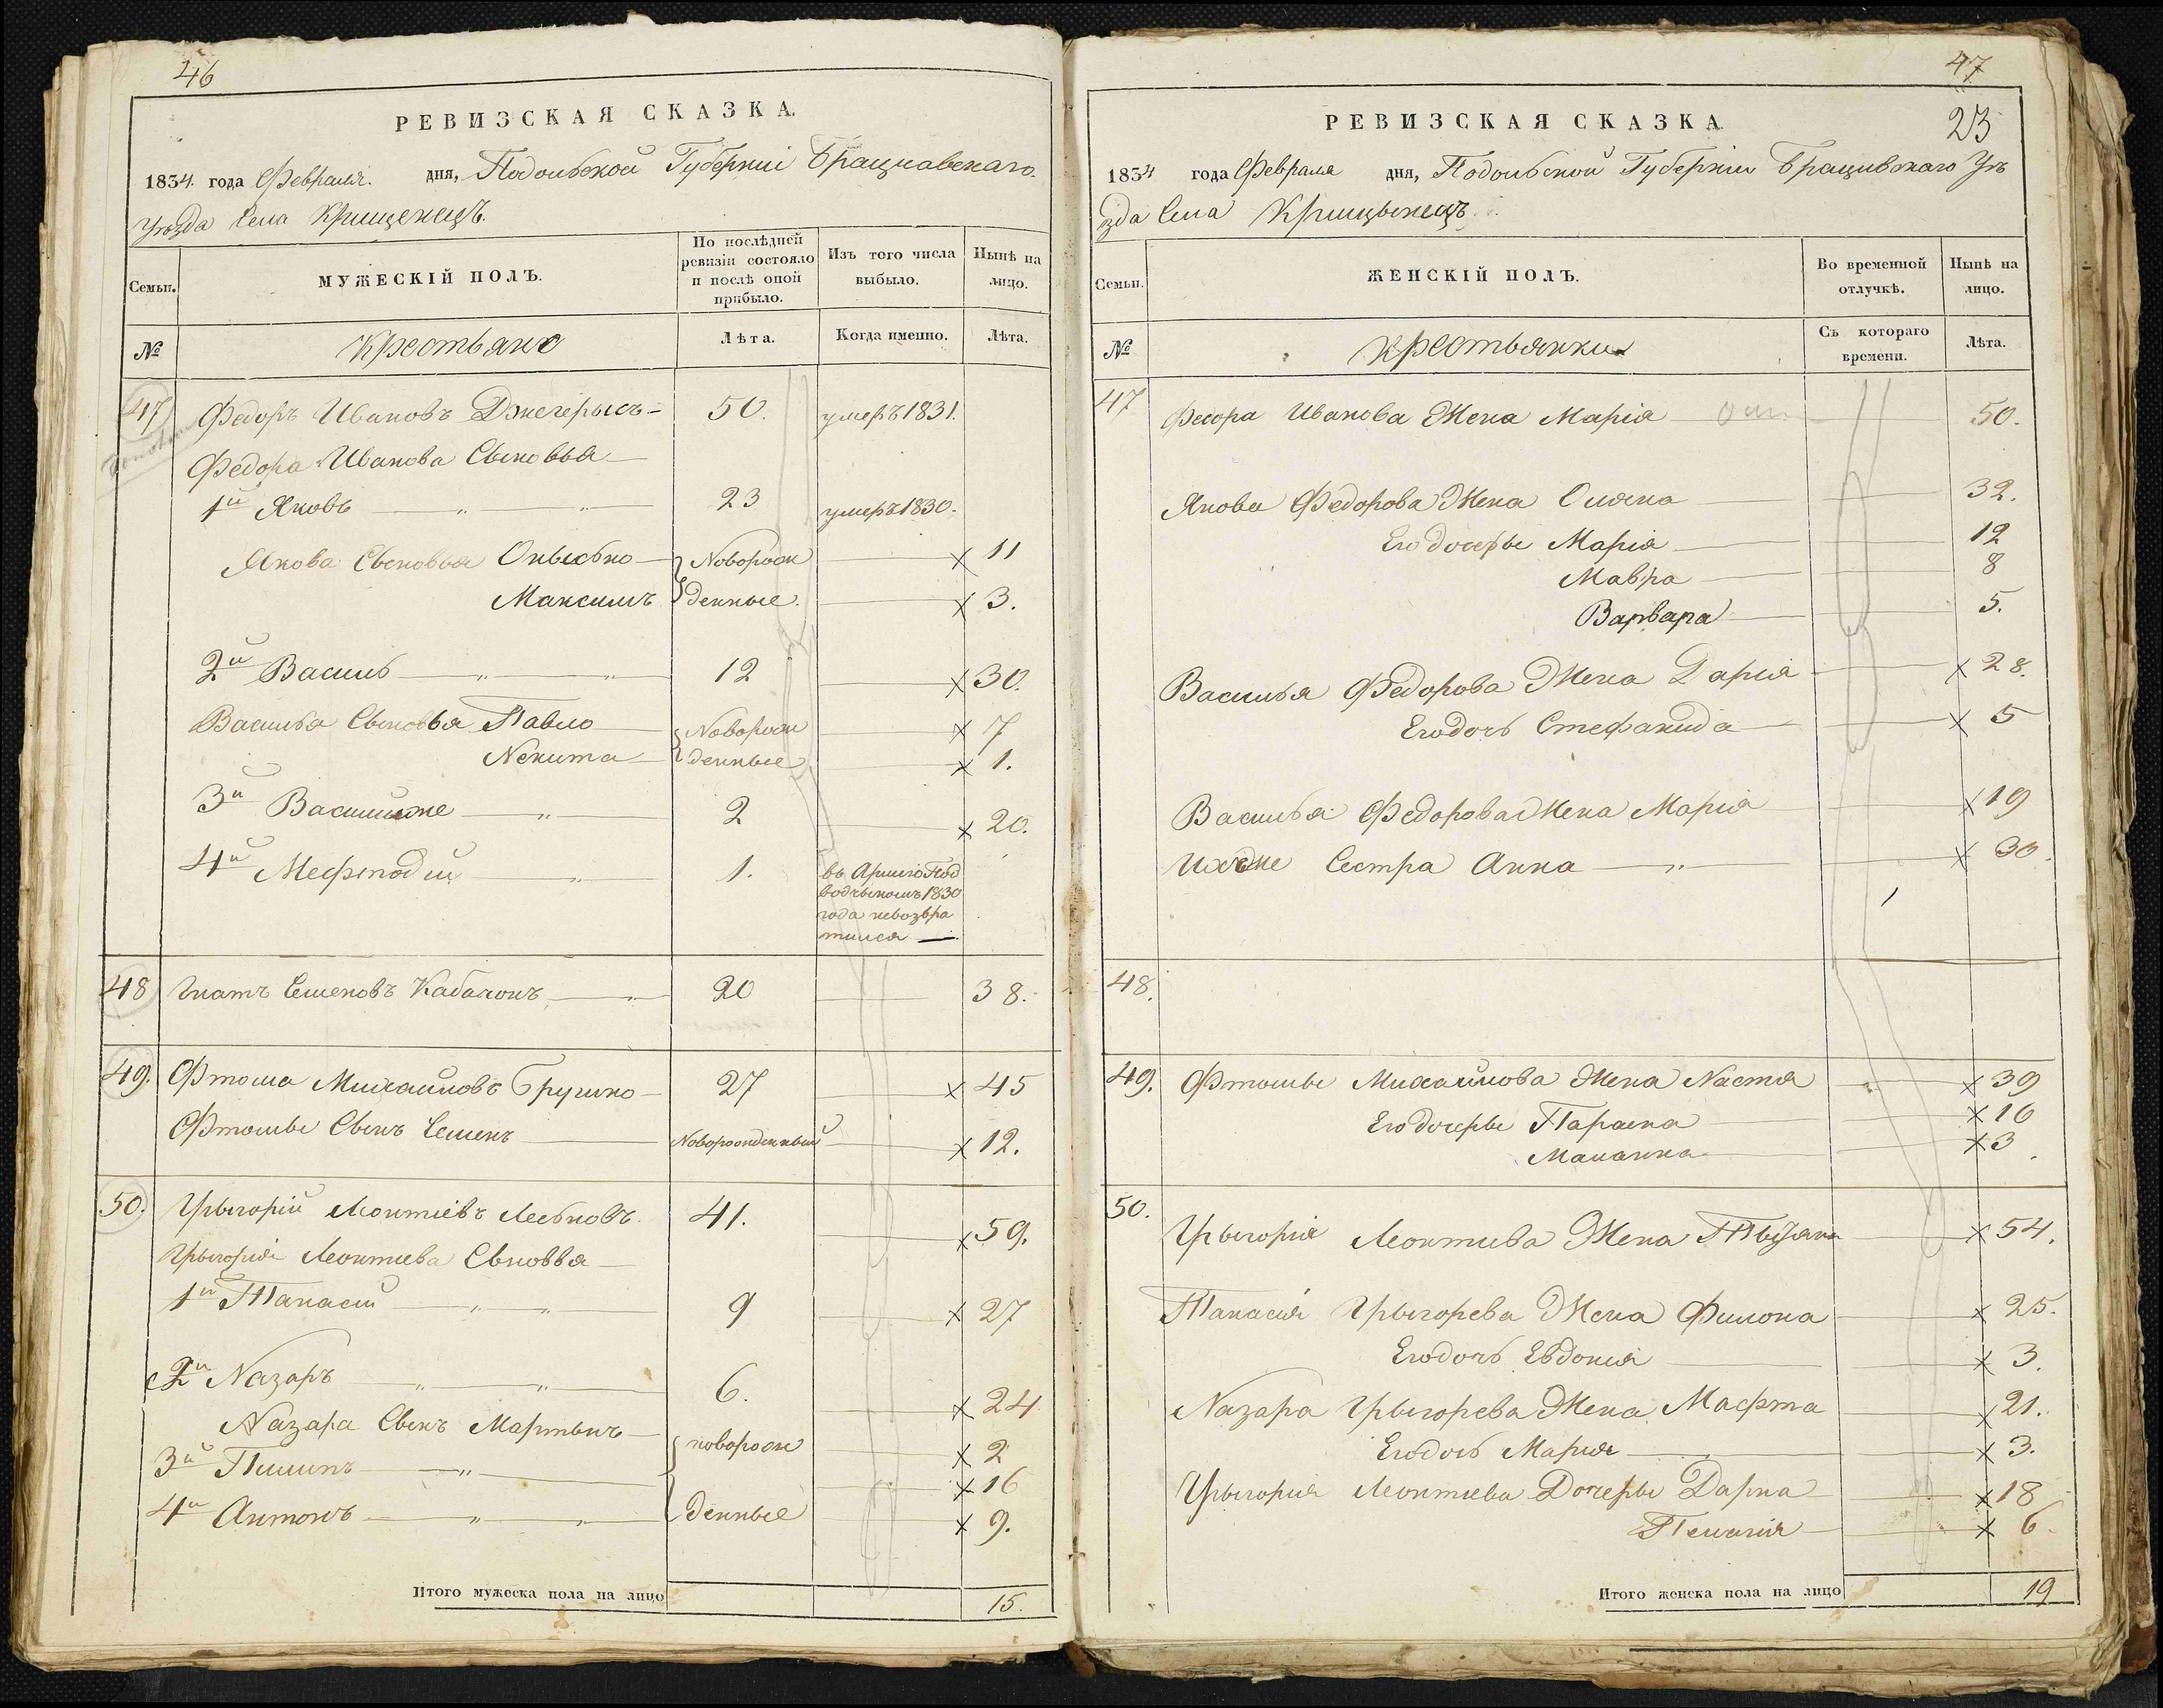 46
РЕВИЗСКАЯ СКАЗКА.
1834. года Февраля. дня, Подольской Губерніи Брацлавскаго
Уѣзда Села Крищенецъ
Семьи.
МУЖЕСКІЙ ПОЛЪ.
По послѣдней ревизіи состояло и послѣ оной прибыло.
Изъ того числа выбыло.
Нынѣ на лицо.
№
Крестьяне
Лѣта.
Когда именно.
Лѣта.
47 Федоръ Ивановъ 50. умеръ 1831.
Федора Иванова Сыновья
1й Яковъ 23 умеръ 1830.
Якова Сыновья Онысько Новорож 11
Максимъ денные. 3.
2й Василь 12 30.
Василья Сыновья Павло Новорож 7
Никита денные 1.
3й Василийже 2 20.
4й Мефтодій 1. въ Армію Под
водчыкомъ 1830
года невозвра
тился
48 Гнатъ Семеновъ Кабачокъ 20 38.
49. Фтома Михайловъ 27 45
Фтомы Сынъ Семенъ Новорожденный 12.
50. Грыгорій Леонтіевъ Леськовъ. 41. 59.
Грыгорія Леонтиева Сыновья
1й Панасій 9 27
2й Назаръ 6. 24
Назара Сынъ Мартынъ новорож 2
3й Пилипъ 16
4й Антонъ денные 9.
Итого мужеска пола на лицо 15.
47
23
РЕВИЗСКАЯ СКАЗКА
1834 года Февраля дня, Подольской Губерніи Брацлавскаго Уѣ
зда Села Крищынецъ
Семьи.
ЖЕНСКІЙ ПОЛЪ.
Во временной отлучкѣ.
Нынѣ на лицо.
№
Крестьянки
Съ котораго времени.
Лѣта.
47 Федора Иванова Жена Марія 50.
Якова Федорова Жена Оляна 32.
Его дочеры Марія 12
Мавра 8
Варвара 5.
Василья Федорова Жена Дарія 28.
Его дочь Стефанида 5
Василья Федорова Жена Марія 19
Ихъже Сестра Анна 30.
48.
49. Фтомы Михайлова Жена Настя 39
Его дочеры Параска 16
Маланка 3
50.
Грыгорія Леонтиева Жена Тытяна 54.
Панасія Грыгорева Жена Филона 25.
Его дочь Евдокія 3.
Назара Грыгорева Жена Марфта 21.
Его дочь Марія 3.
Грыгорія Леонтиева Дочеры Дарка 18
Пелагія 6.
Итого женска пола на лицо 19